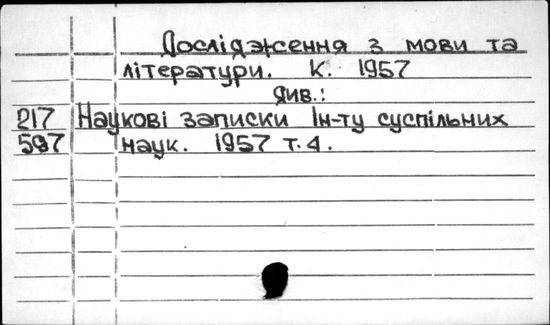 Дослідження з мови та
літератури. К. 1957
Див.:
217 Наукові записки Ін-ту суспільних
597 наук. 1957 т. 4.